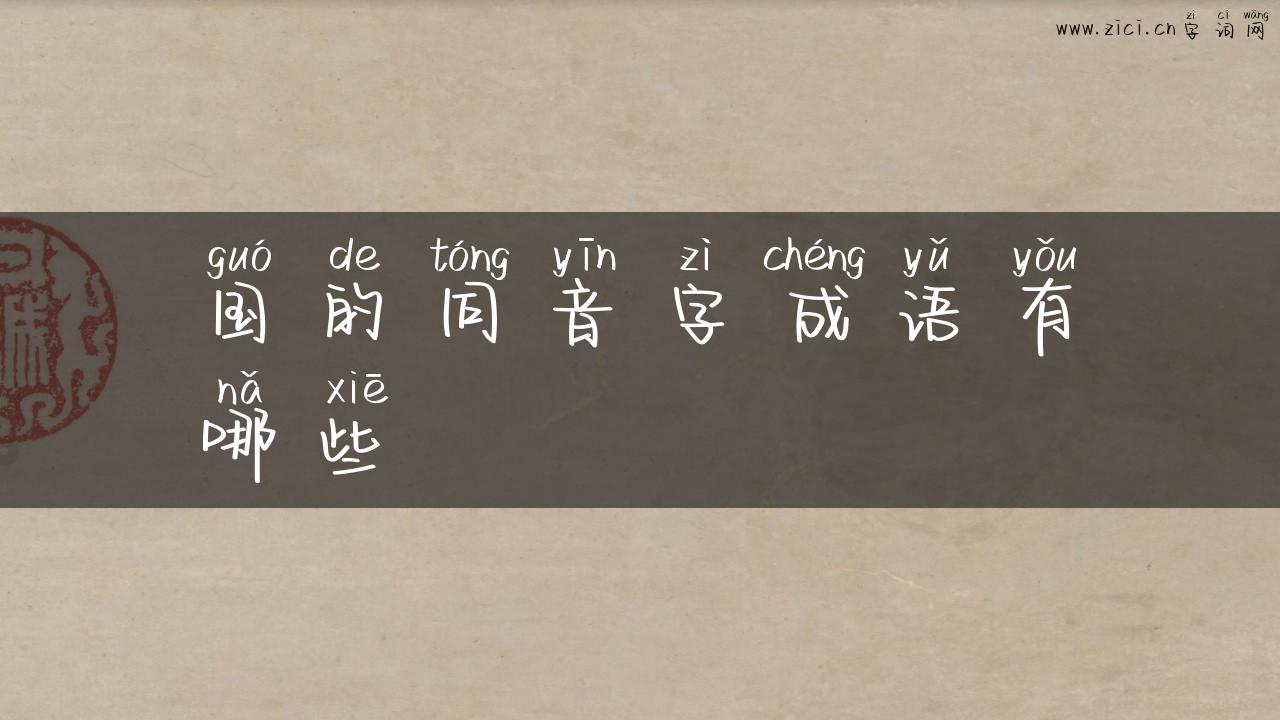 zì cí wǎng
www.zici.cn字词网
guó de tóng yīn zì chéng yǔ yǒu
国的同音字成语有
nǎ xiē
哪些